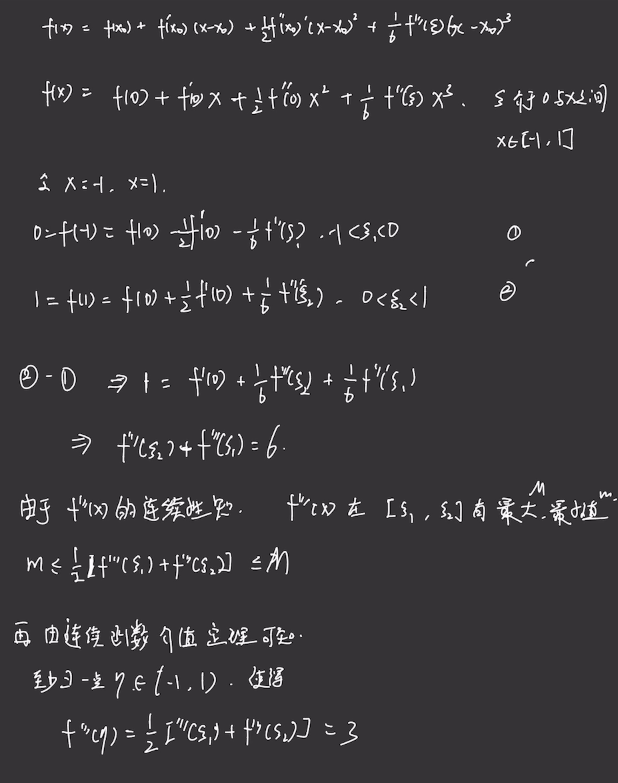 f(x) = f(x₀) + f'(x₀)(x-x₀) + ½f''(x₀)(x-x₀)² + 1/6 f'''(ξ)(x-x₀)³
f(x) = f(0) + f'(0)x + ½f''(0)x² + 1/6 f'''(ξ)x³. ξ介于0与x之间
x∈[-1, 1]
令 x=-1, x=1.
0=f(-1) = f(0) - ½f'(0) - 1/6 f'''(ξ₁), -1<ξ₁<0 ①
1 = f(1) = f(0) + ½f'(0) + 1/6 f'''(ξ₂), 0<ξ₂<1 ②
②-① ⇒ 1 = f'(0) + 1/6 f'''(ξ₂) + 1/6 f'''(ξ₁)
⇒ f'''(ξ₂) + f'''(ξ₁) = 6.
由于 f'''(x) 的连续性知. f'''(x) 在 [ξ₁, ξ₂] 有最大M.最小值m
m ≤ ½[f'''(ξ₁) + f'''(ξ₂)] ≤ M
再由连续函数介值定理可知.
至少∃一点 η∈(-1, 1). 使得
f'''(η) = ½[f'''(ξ₁) + f'''(ξ₂)] = 3